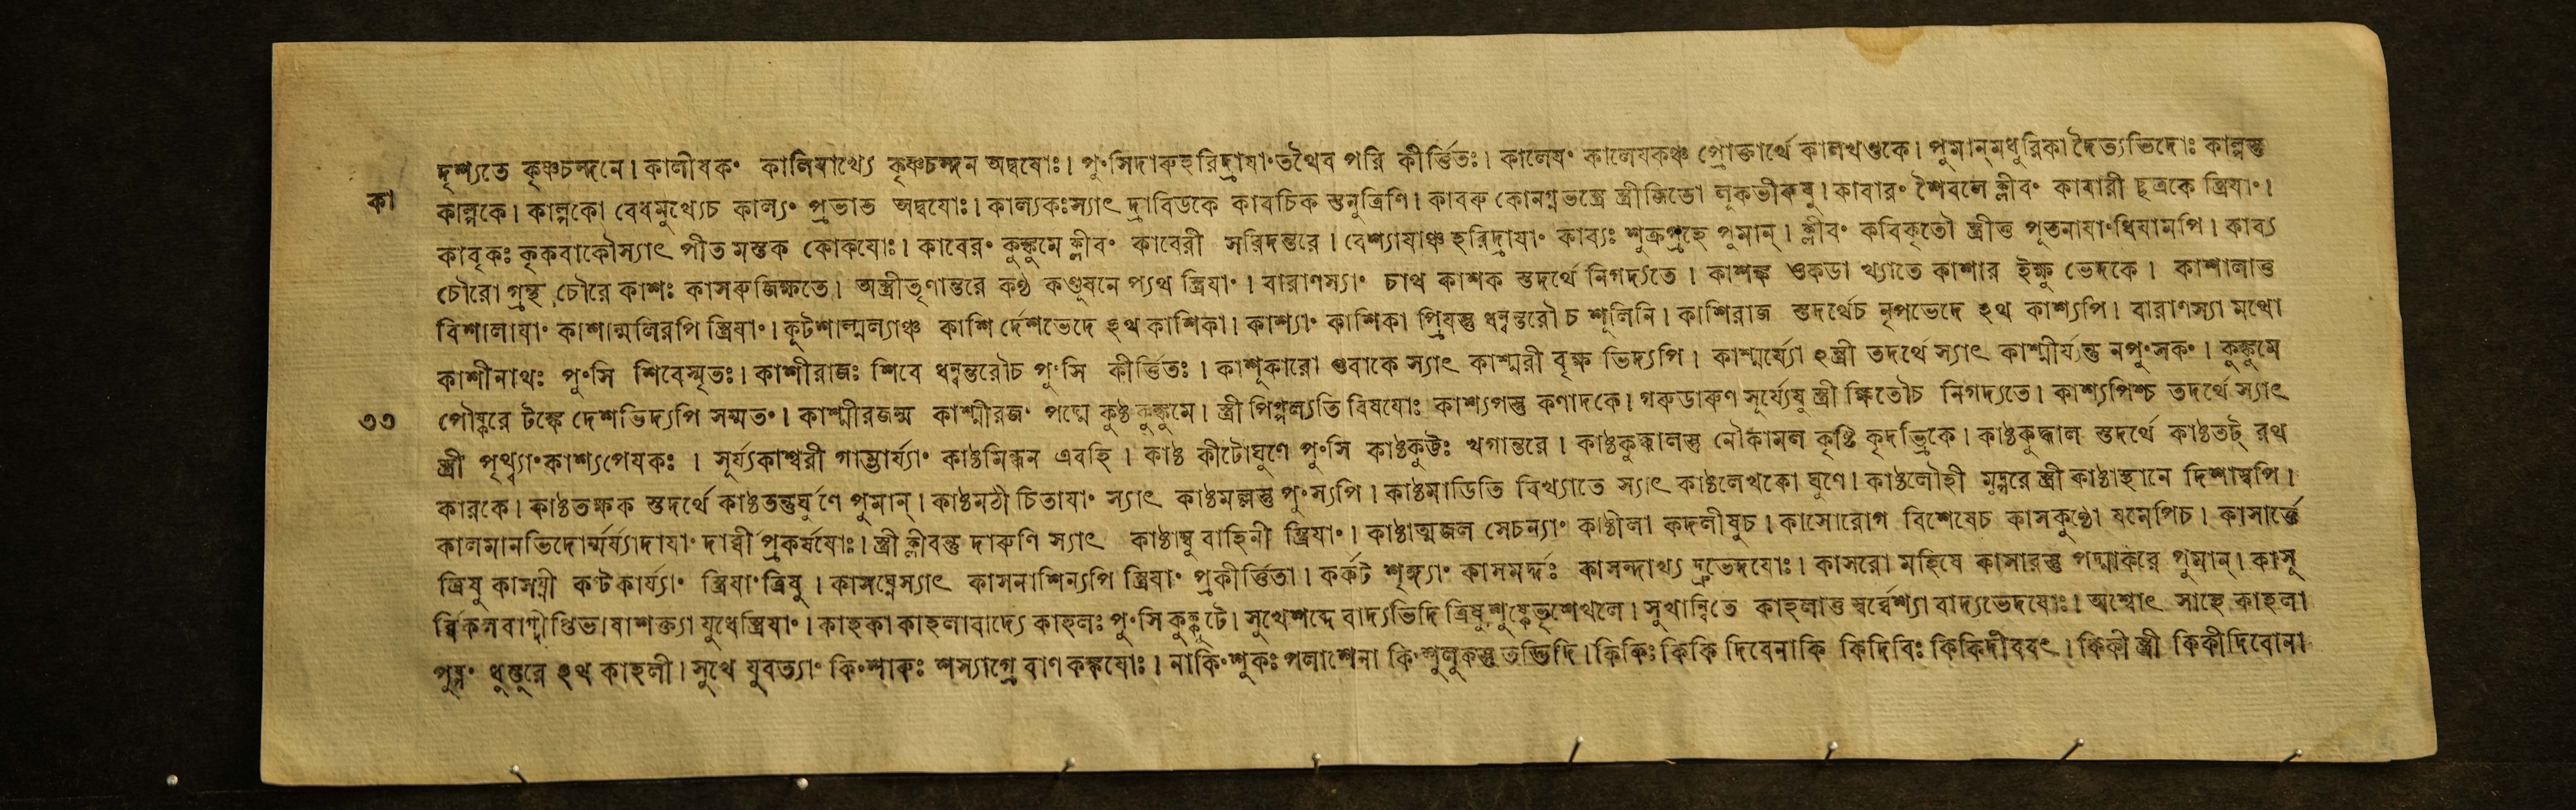 দৃশ্যতে কৃষ্ণচন্দনে। কালীযক° কালিযাখ্যে কৃষ্ণচন্দন অদ্বযোঃ। পু°সিদাৰুহরিদ্রাযা°তথৈব পরি কীর্ত্তিতঃ। কালেয° কালেযকঞ্চ প্রোক্তার্থে কালখণ্ডকে। পুমান্মধুরিকা দৈত্যভিদোঃ কাল্পস্তু
কা
কাল্পকে। কাল্পকো বেধমুখ্যেচ কাল্য° প্রভাত অদ্বযোঃ। কাল্যকঃস্যাৎ দ্রাবিডকে কাবচিক স্তনুত্রিণি। কাবৰু কোনগ্নভন্ত্রে স্ত্রীজিতো লূকভীৰুষু। কাবার° শৈবলে ক্লীব° কাবারী ছত্রকে স্ত্রিযা°।
কাবৃকঃ কৃকবাকৌস্যাৎ পীত মস্তক কোকযোঃ। কাবের° কুঙ্কুমে ক্লীব° কাবেরী সরিদন্তরে। বেশ্যাযাঞ্চ হরিদ্রাযা° কাব্যঃ শুক্রগ্রহে পুমান্। ক্লীব° কবিকৃতৌ স্ত্রীত্ত পূতনাযা°ধিযামপি। কাব্য
চৌরো গ্রন্থ চৌরে কাশঃ কাসৰুজিক্ষতে। অস্ত্রীতৃণান্তরে কণ্ঠ কণ্ডূষনে প্যথ স্ত্রিযা°। বারাণস্যা° চাথ কাশক স্তদর্থে নিগদ্যতে। কাশঙ্ক ওকডা খ্যাতে কাশার ইক্ষু ভেদকে। কাশালাত্ত
বিশালাযা° কাশাল্মলিরপি স্ত্রিযা°। কূটশাল্মল্যাঞ্চ কাশি র্দেশভেদে ঽথ কাশিকা। কাশ্যা° কাশিকা প্রিযস্তু ধন্বন্তরৌ চ শূলিনি। কাশিরাজ স্তদর্থেচ নৃপভেদে ঽথ কাশ্যপি। বারাণস্যা মথো
কাশীনাথঃ পু°সি শিবেস্মৃতঃ। কাশীরাজঃ শিবে ধন্বন্তরৌচ পু°সি কীর্ত্তিতঃ। কাশূকারো গুবাকে স্যাৎ কাশ্মরী বৃক্ষ ভিদ্যপি। কাশ্মর্য্যো ঽস্ত্রী তদর্থে স্যাৎ কাশ্মীর্যন্তু নপু°সক°। কুঙ্কুমে
৩৩
পৌষ্করে টঙ্কে দেশভিদ্যপি সম্মত°। কাশ্মীরজন্ম কাশ্মীরজ° পদ্মে কুষ্ঠ কুঙ্কুমে। স্ত্রী পিপ্পল্যতি বিষযোঃ কাশ্যপস্তু কণাদকে। গৰুডাৰুণ সূর্য্যেষু স্ত্রী ক্ষিতৌচ নিগদ্যতে। কাশ্যপিশ্চ তদর্থে স্যাৎ
স্ত্রী পৃথ্ব্যা°কাশ্যপেযকঃ। সূর্য্যকাশ্বরী গাম্ভার্য্যা° কাষ্ঠমিন্ধন এবহি। কাষ্ঠ কীটোঘুণে পু°সি কাষ্ঠকুট্টঃ খগান্তরে। কাষ্ঠকুদ্দালস্তু নৌকামল কৃষ্টি কৃদভ্রিকে। কাষ্ঠকুদ্ধাল স্তদর্থে কাষ্ঠতট্ রথ
কারকে। কাষ্ঠতক্ষক স্তদর্থে কাষ্ঠতন্তুর্ঘুণে পুমান্। কাষ্ঠমঠী চিতাযা° স্যাৎ কাষ্ঠমল্লস্তু পু°স্যপি। কাষ্ঠমাডিতি বিখ্যাতে স্যাৎ কাষ্ঠলেখকো ঘুণে। কাষ্ঠলৌহী মুদ্গরে স্ত্রী কাষ্ঠাস্থানে দিশাস্বপি।
কালমানভিদোর্ম্মর্য্যাদাযা° দার্ব্বী প্রকর্ষযোঃ। স্ত্রী ক্লীবন্তু দাৰুণি স্যাৎ কাষ্ঠাম্বু বাহিনী স্ত্রিযা°। কাষ্ঠাত্মজল সেচন্যা° কাষ্ঠীলা কদলীষুচ। কাসোরোগ বিশেষেচ কাসকুণ্ঠো যমেপিচ। কাসার্ত্তে
ত্রিষু কাসঘ্নী কণ্টকার্য্যা° স্ত্রিযা°ত্রিষু। কাসঘ্নেস্যাৎ কাসনাশিন্যপি স্ত্রিযা° প্রকীর্ত্তিতা। কর্কট শৃঙ্গ্যা° কাসমর্দ্দঃ কাসন্দাখ্য দ্রুভেদযোঃ। কাসরো মহিষে কাসারস্তু পদ্মাকরে পুমান্। কাসূ
র্ব্বিকলবাগ্দীপ্তিভাষাশক্ত্যা যুধেস্ত্রিযা°। কাহকা কাহলাবাদ্যে কাহলঃ পু°সি কুক্কুটে। সুখেশব্দে বাদ্যভিদি ত্রিষু শুষ্কেভৃশেখলে। সুখান্বিতে কাহলাত্ত স্বর্ব্বেশ্যা বাদ্যভেদযোঃ। অশ্বোৎ সাহে কাহলা
পুষ্প° ধুস্তূরে ঽথ কাহলী। সুখে যুবত্যা° কি°শাৰুঃ শস্যাগ্রে বাণ কঙ্কযোঃ। নাকি°শুকঃ পলাশেনা কি°শুলুকস্তু তদ্ভিদি। কিকিঃ কিকি দিবেনাকি কিদিবিঃ কিকিদীববৎ। কিকী স্ত্রী কিকীদিবোনা